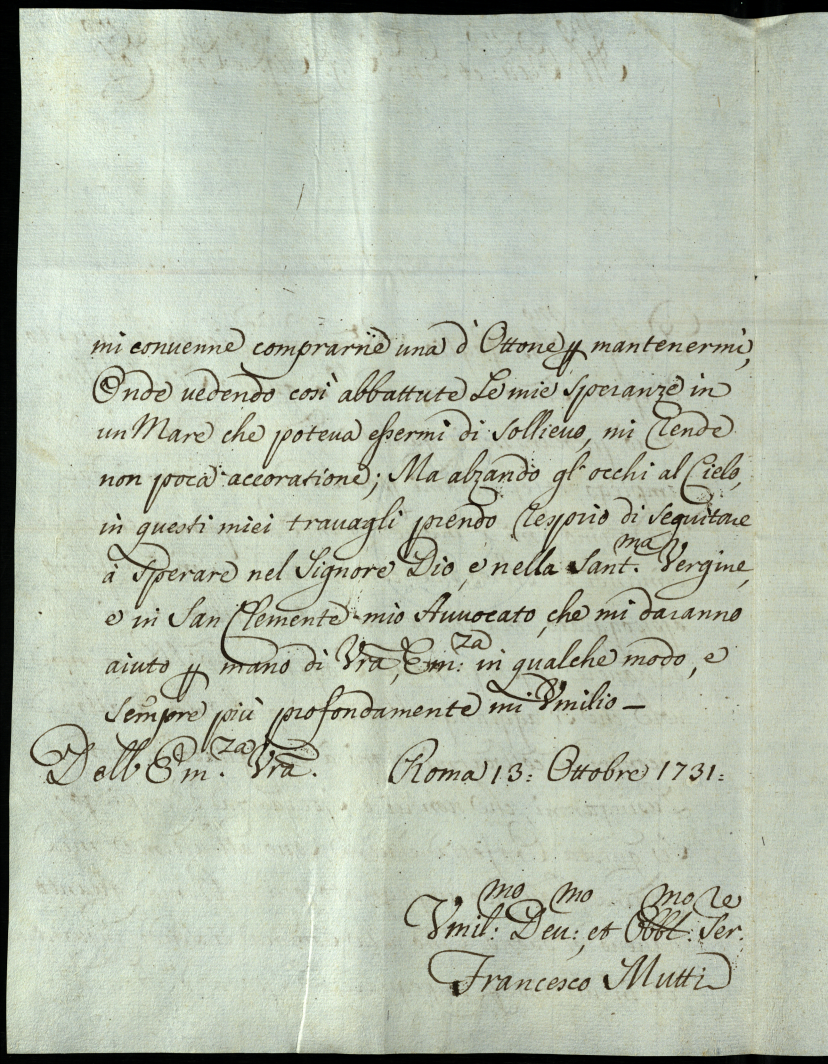 mi conuenne comprarne una d'Ottone ꝑ mantenermi,
Onde uedendo così abbattute le mie speranze in
un Mare che poteua essermi di sollieuo, mi rende
non poca accoratione; Ma alzando gl'occhi al Cielo,
in questi miei trauagli prendo respiro di seguitare
à sperare nel Signore Dio, e nella Sant.ma Vergine,
e in San Clemente mio Auuocato, che mi daranno
aiuto ꝑ mano di Vra Em:za in qualche modo, e
sempre più profondamente mi Vmilio –
Dell' Em.za Vra. Roma 13: Ottobre 1731:
Vmil:mo Deu:mo et Obbl.mo Ser.re
Francesco Mutti